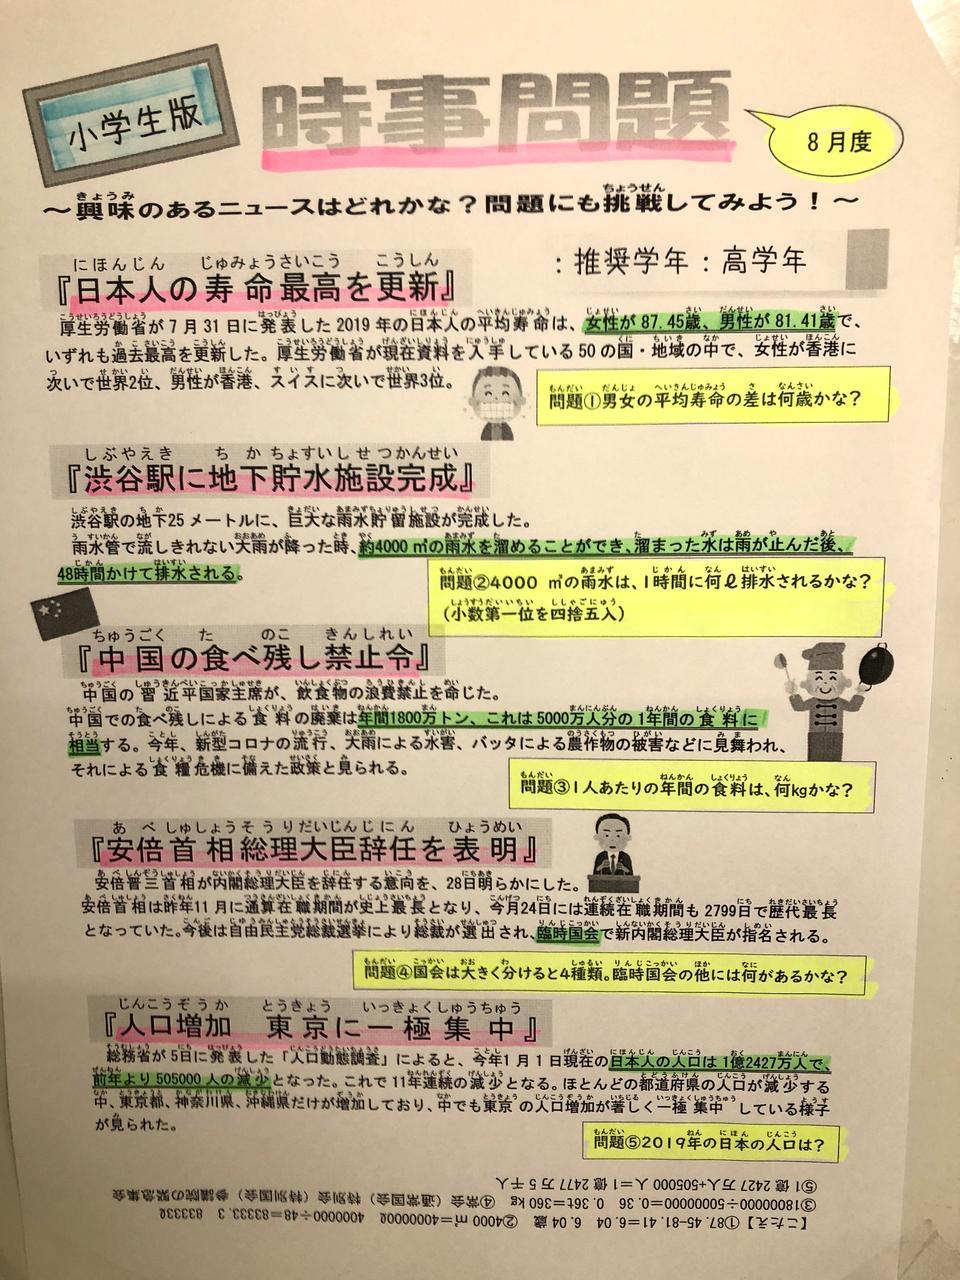 小学生版
時事問題
8月度
～興味のあるニュースはどれかな？問題にも挑戦してみよう！～
：推奨学年：高学年
『日本人の寿命最高を更新』
厚生労働省が7月31日に発表した2019年の日本人の平均寿命は、女性が87.45歳、男性が81.41歳で、
いずれも過去最高を更新した。厚生労働省が現在資料を入手している50の国・地域の中で、女性が香港に
次いで世界2位、男性が香港、スイスに次いで世界3位。
問題①男女の平均寿命の差は何歳かな？
『渋谷駅に地下貯水施設完成』
渋谷駅の地下25メートルに、巨大な雨水貯留施設が完成した。
雨水管で流しきれない大雨が降った時、約4000㎥の雨水を溜めることができ、溜まった水は雨が止んだ後、
48時間かけて排水される。
問題②4000㎥の雨水は、1時間に何ℓ排水されるかな？
（小数第一位を四捨五入）
『中国の食べ残し禁止令』
中国の習近平国家主席が、飲食物の浪費禁止を命じた。
中国での食べ残しによる食料の廃棄は年間1800万トン、これは5000万人分の1年間の食料に
相当する。今年、新型コロナの流行、大雨による水害、バッタによる農作物の被害などに見舞われ、
それによる食糧危機に備えた政策と見られる。
問題③1人あたりの年間の食料は、何kgかな？
『安倍首相総理大臣辞任を表明』
安倍晋三首相が内閣総理大臣を辞任する意向を、28日明らかにした。
安倍首相は昨年11月に通算在職期間が史上最長となり、今月24日には連続在職期間も2799日で歴代最長
となっていた。今後は自由民主党総裁選挙により総裁が選出され、臨時国会で新内閣総理大臣が指名される。
問題④国会は大きく分けると4種類。臨時国会の他には何があるかな？
『人口増加　東京に一極集中』
総務省が5日に発表した「人口動態調査」によると、今年1月1日現在の日本人の人口は1億2427万人で、
前年より505000人の減少となった。これで11年連続の減少となる。ほとんどの都道府県の人口が減少する
中、東京都、神奈川県、沖縄県だけが増加しており、中でも東京の人口増加が著しく一極集中している様子
が見られた。
問題⑤2019年の日本の人口は？
【こたえ】①87.45-81.41=6.04　6.04歳　②4000㎥=4000000ℓ　4000000÷48=83333.3　83333ℓ
③18000000÷50000000=0.36　0.36t=360kg　④常会（通常国会）特別会（特別国会）参議院の緊急集会
⑤1億2427万人+505000人=1億2477万5千人